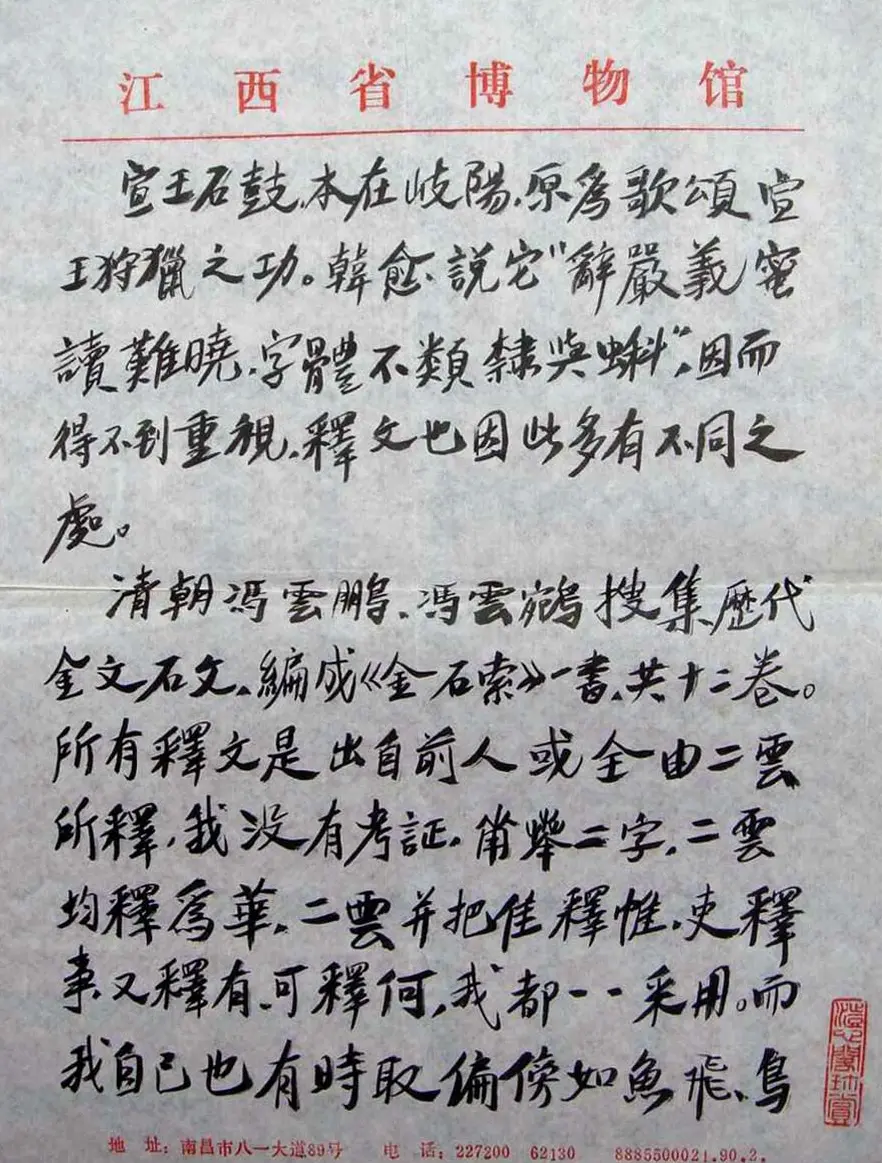 江西省博物馆
宣王石鼓，本在岐陽，原為歌頌宣
王狩獵之功。韓愈說它“辭嚴義密
讀難曉，字體不類隸與蝌”，因而
得不到重視，釋文也因此多有不同之
處。
清朝馮雲鵬、馮雲鵷搜集歷代
金文石文，編成《金石索》一書，共十二卷。
所有釋文是出自前人或全由二雲
所釋，我没有考証。二字，二雲
均釋為華，二雲并把隹釋惟，吏釋
事又釋有，可釋何，我都一一采用。而
我自己也有時取偏傍如魚飛、鳥
地 址：南昌市八一大道89号 电 话：227200 62130 8885500021.90.2.